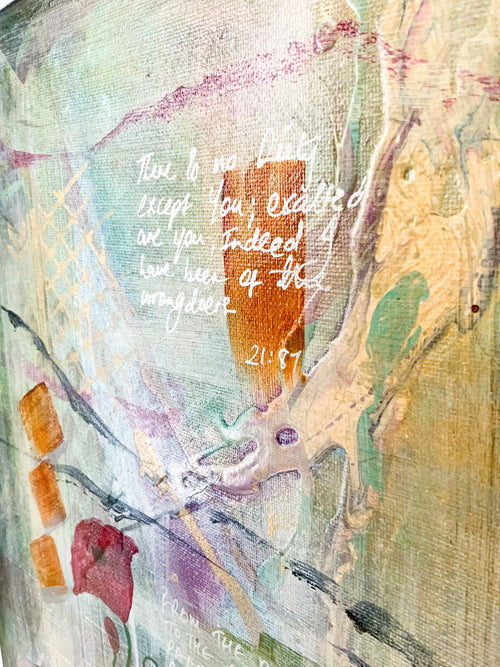 There is no Deity
except You; exalted
are you, Indeed I
have been of the
wrongdoers
21:87
FROM THE
TO THE